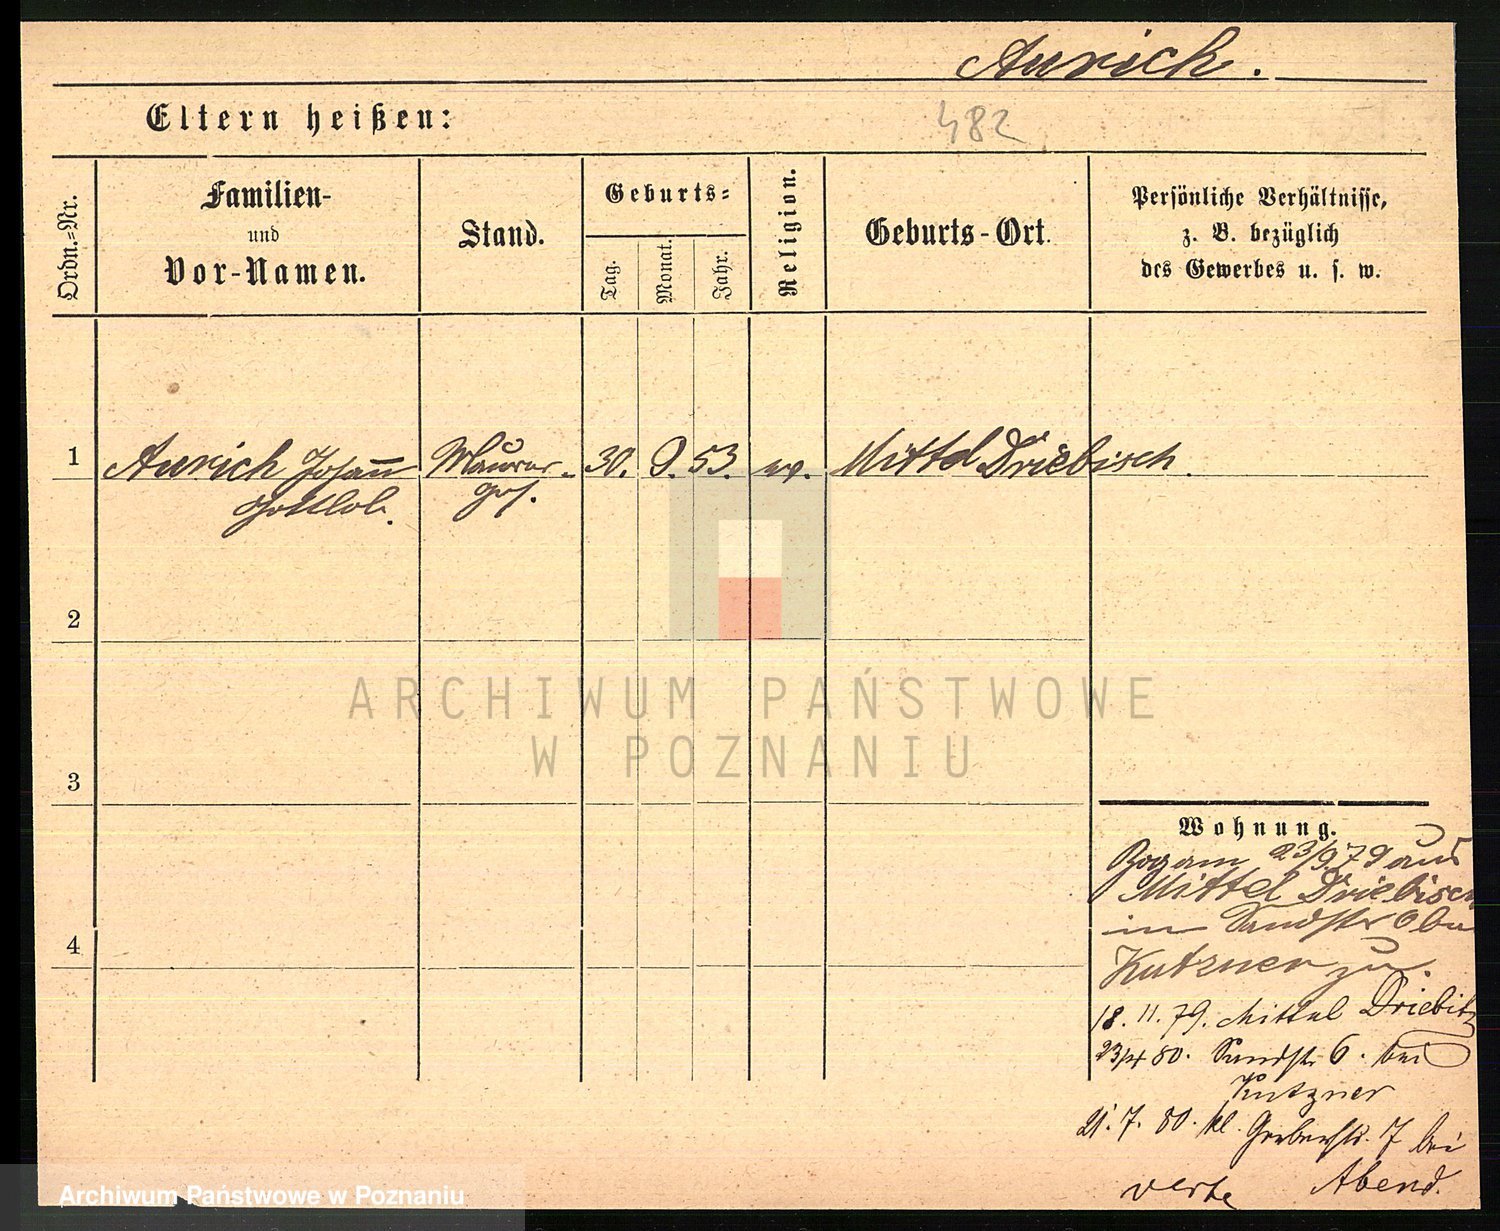 Aurich.
Eltern heißen:
482
Ordn.=Nr.
Familien-
und
Vor-Namen.
Stand.
Geburts=
Tag.
Monat.
Jahr.
Religion.
Geburts-Ort.
Persönliche Verhältnisse,
z. B. bezüglich
des Gewerbes u. s. w.
1 Aurich Johann Maurer- 30. 9. 53. ev. Mittel Driebisch.
Gottlob. ges.
2
ARCHIWUM PAŃSTWOWE
W POZNANIU
3
Wohnung.
Zog am 23/9 79 aus
Mittel Driebisch
in Sandstr 6 bei
Kutzner zu.
4
18. 11. 79. Mittel Driebitz
23/4 80. Sandstr 6. bei
Kutzner
21. 7. 80. kl. Gerberstr. 7 bei
verte Abend.
Archiwum Państwowe w Poznaniu